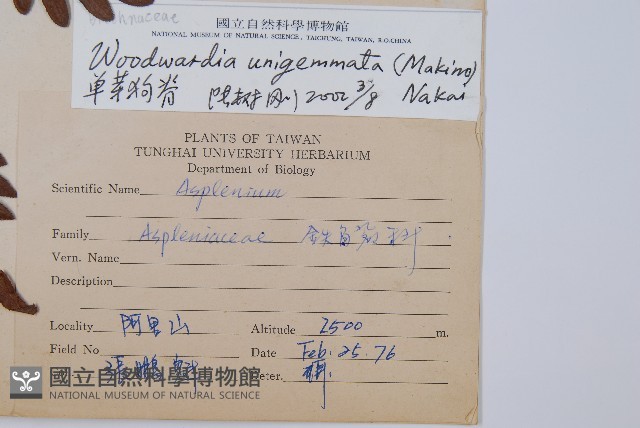 Blechnaceae
國立自然科學博物館
NATIONAL MUSEUM OF NATURAL SCIENCE, TAICHUNG, TAIWAN, R.O.CHINA
Woodwardia unigemmata (Makino)
单芽狗脊 陳樹剛 2002 3/8 Nakai
PLANTS OF TAIWAN
TUNGHAI UNIVERSITY HERBARIUM
Department of Biology
Scientific Name Asplenium
Family Aspleniaceae 鉄角蕨科
Vern. Name
Description
Locality 阿里山 Altitude 2500 m.
Field No Date Feb. 25. 76
Deter.
國立自然科學博物館
NATIONAL MUSEUM OF NATURAL SCIENCE